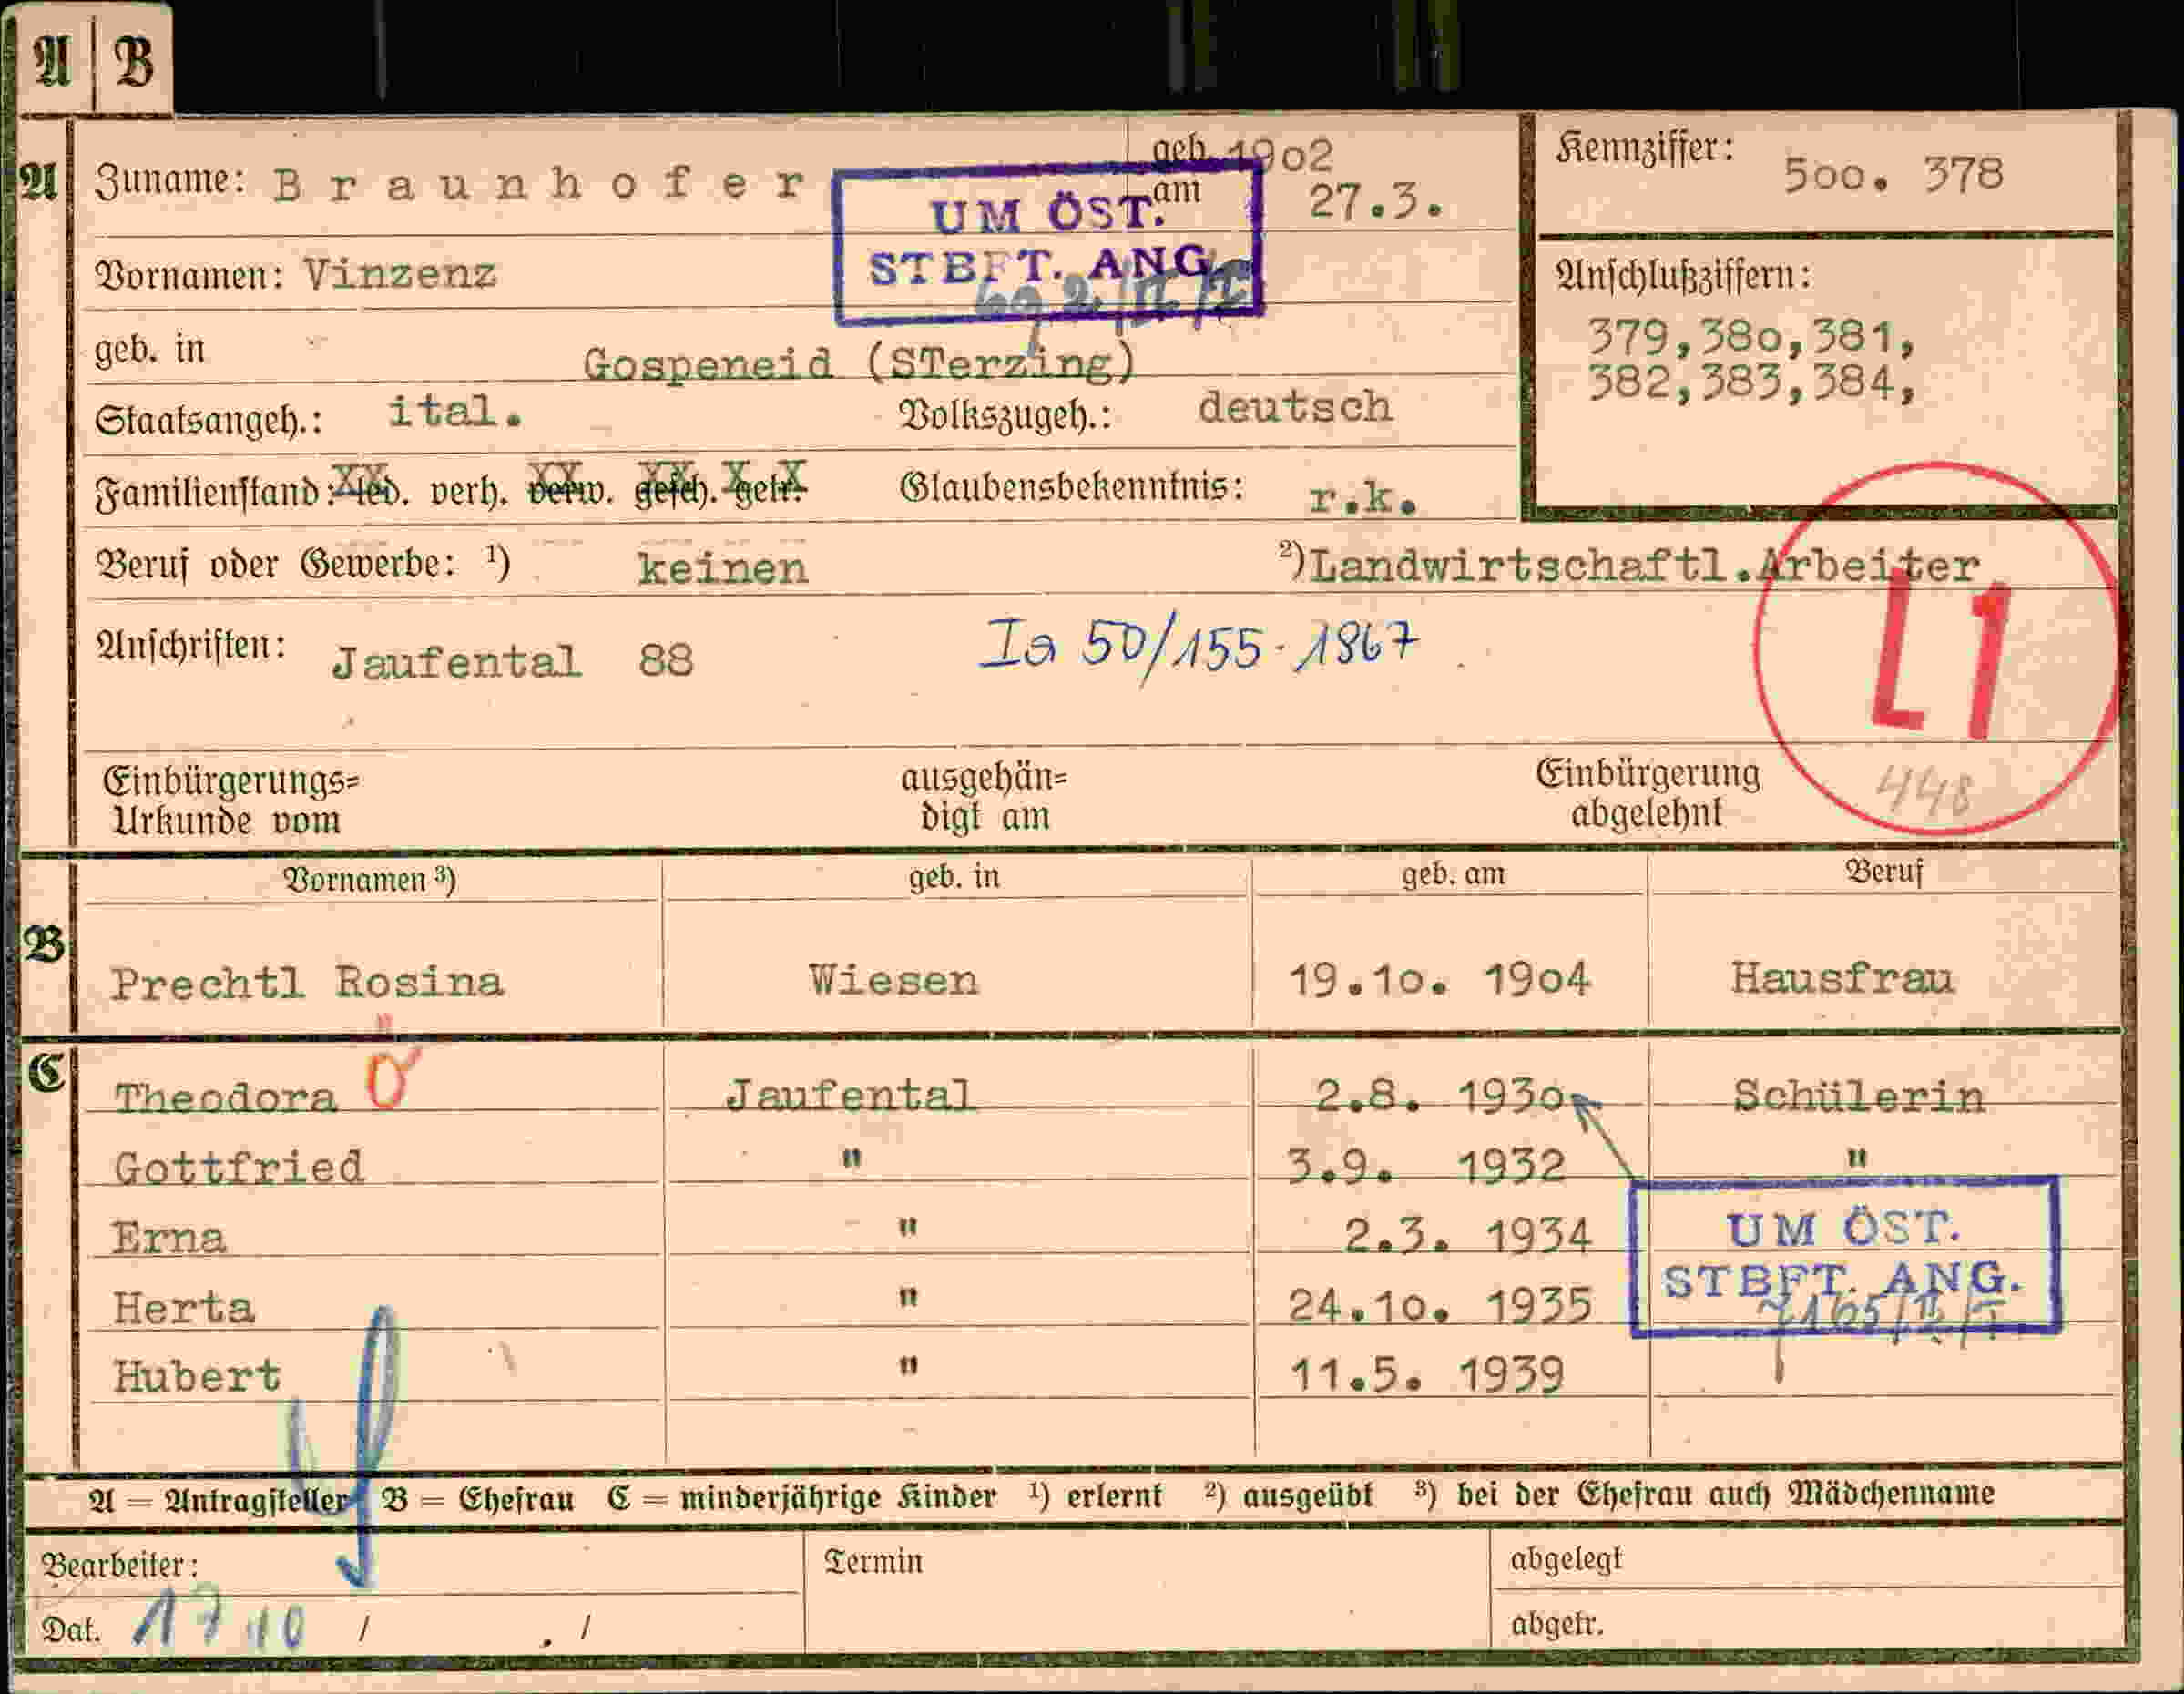 A B
A Zuname: Braunhofer geb. am 1902 27.3.
Kennziffer: 500. 378
UM ÖST.
STBFT. ANG.
Vornamen: Vinzenz
Anschlußziffern:
379,380,381,
382,383,384,
geb. in Gospeneid (STerzing)
Staatsangeh.: ital. Volkszugeh.: deutsch
Familienstand: led. verh. verw. gesch. getr. Glaubensbekenntnis: r.k.
Beruf oder Gewerbe: ¹) keinen ²)Landwirtschaftl.Arbeiter
Anschriften: Jaufental 88 Ia 50/155-1867
L1
448
Einbürgerungs=
Urkunde vom
ausgehän=
digt am
Einbürgerung
abgelehnt
B Vornamen ³) geb. in geb. am Beruf
Prechtl Rosina Wiesen 19.10. 1904 Hausfrau
C Theodora Ö Jaufental 2.8. 1930 Schülerin
Gottfried " 3.9. 1932 "
Erna " 2.3. 1934
Herta " 24.10. 1935
Hubert " 11.5. 1939
UM ÖST.
STBFT. ANG.
A = Antragsteller B = Ehefrau C = minderjährige Kinder ¹) erlernt ²) ausgeübt ³) bei der Ehefrau auch Mädchenname
Bearbeiter: Termin abgelegt
Dat. 17 10 / . / abgetr.